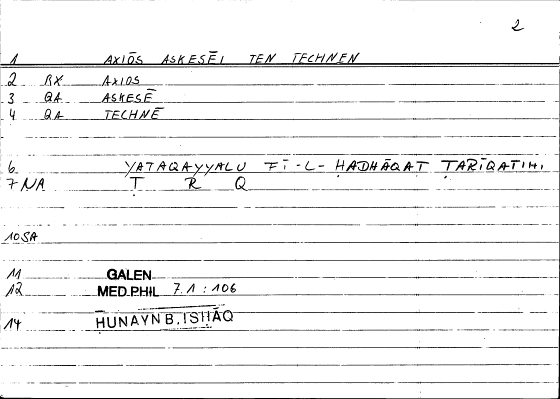 2
1 AXIŌS ASKESĒI TEN TECHNEN
2 BX AXIOS
3 QA ASKESĒ
4 QA TECHNĒ
6 YATAQAYYALU FĪ-L-ḤADHĀQAT ṬARĪQATIHI
7 NA Ṭ R Q
10 SA
11 GALEN
12 MED.PHIL 7.1 : 106
14 ḤUNAYN B. ISḤĀQ